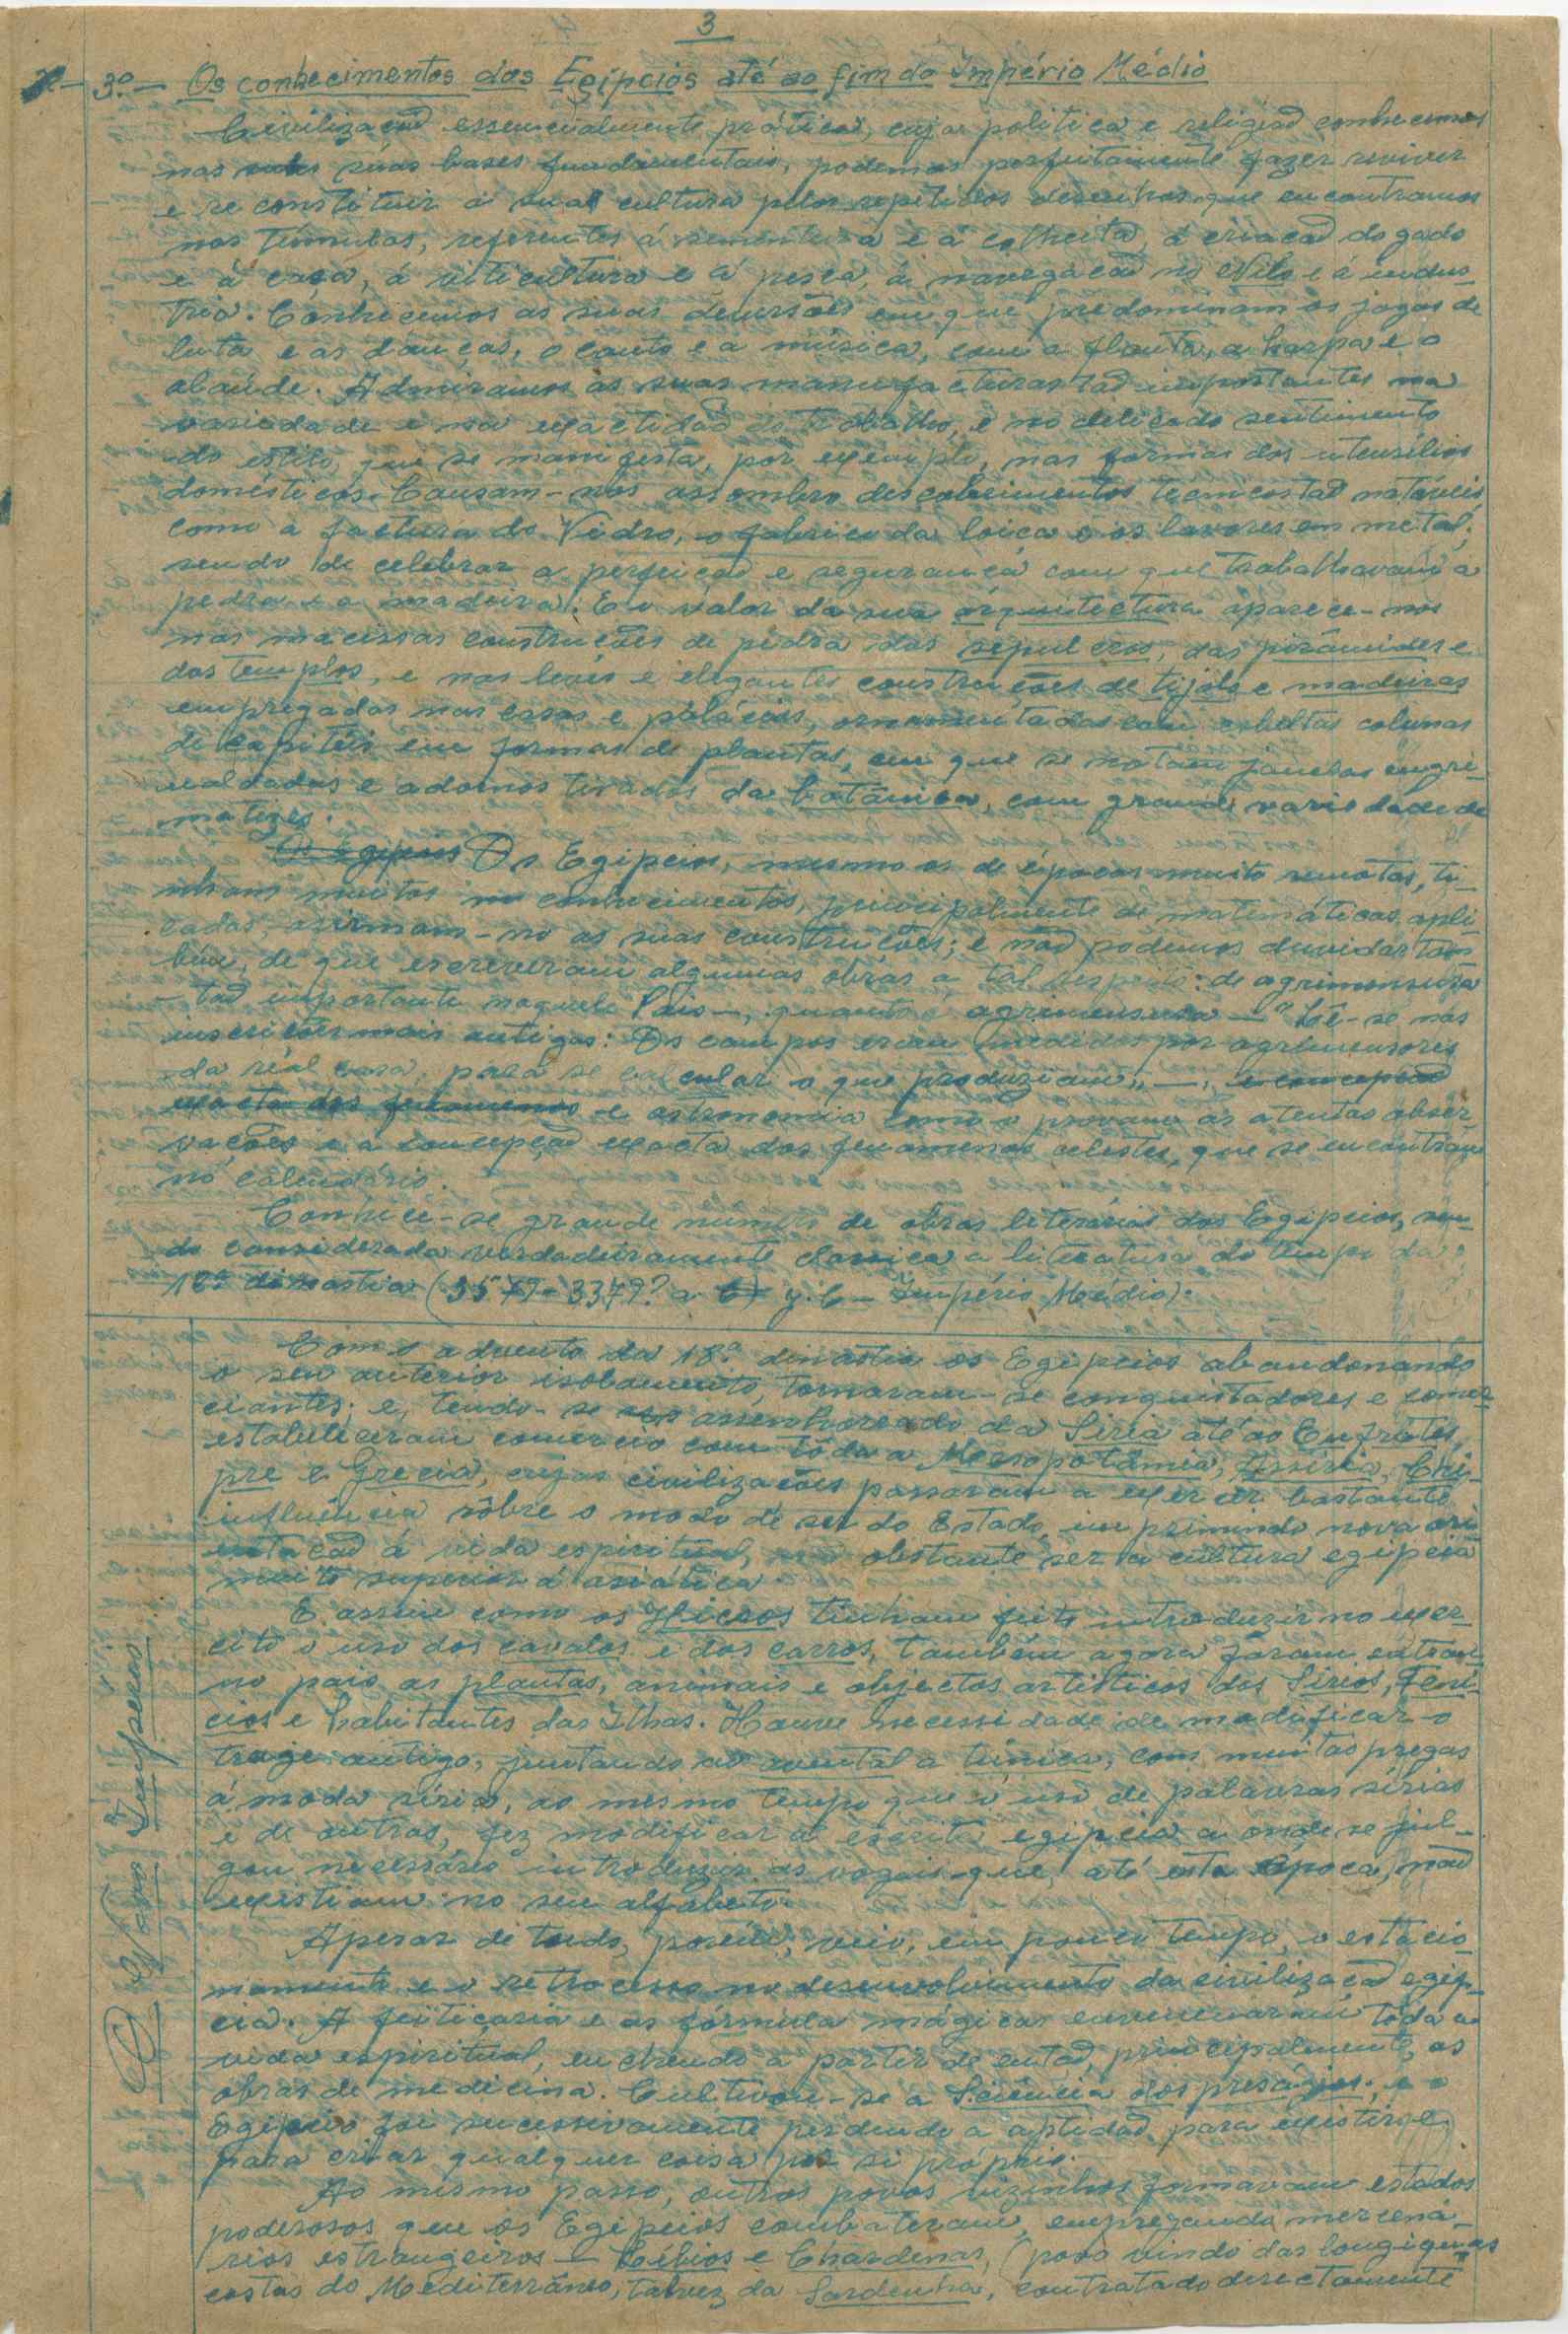 3
3º — Os conhecimentos dos Egípcios até ao fim do Império Médio
Civilização essencialmente prática, cuja politica e religiaõ conhecemos
nas suas bases fundamentais, podemos perfeitamente fazer reviver
e reconstituir a sua cultura pelos repetidos desenhos que encontramos
nos túmulos, referentes á sementeira e á colheita, á criacaõ do gado
e á caça, á viticultura e á pesca, á navegacaõ no Nilo e á indus-
tria. Conhecemos as suas diversões em que predominam os jogos de
luta e as danças, o canto e a música, com a flauta, a harpa e o
alaúde. Admiramos as suas manufacturas taõ importantes na
variedade e na exactidaõ do trabalho, e no delicado sentimento
do estilo, que se manifesta, por exemplo, nas formas dos utensílios
domésticos. Causam-nos assombro descobrimentos técnicos taõ notáveis
como a factura do Vidro, o fabrico da loiça e os lavores em metal;
sendo de celebrar a perfeicaõ e segurança com que trabalhavam a
pedra e a madeira. E o valor da sua arquitectura aparece-nos
nas macissas construções de pedra dos sepulcros, das pirâmides e
dos templos, e nas leves e elegantes construções de tijolo e madeiras
empregadas nas casas e palácios, ornamentadas com esbeltas colunas
de capitéis em formas de plantas, em que se notam janelas engri-
naldadas e adornos tirados da botânica, com grande variedade de
matizes.
Os Egipcios Os Egipcios, mesmo os de épocas muito remotas, ti-
nham muitos conhecimentos, principalmente de matemáticas apli-
cadas, afirmam-no as suas construções; e naõ podemos duvidar tam-
bém, de que escreveram algumas obras a tal respeito: de agrimensura
— taõ importante naquele País —, quanto a agrimensura — "Lê-se nas
inscrições mais antigas: Os campos eram medidos por agrimensores
da real casa, para se calcular o que produziam" —, e concepcaõ
exacta dos fenomenos e astronomia como o provam as atentas obser-
vações e a concepçaõ exacta dos fenomenos celestes, que se encontram
no calendário.
Conhece-se grande numero de obras literárias dos Egipcios, sen-
do considerada verdadeiramente classica a literatura do tempo da
12ª dinastia (3579-3379? a. J.C — Império Médio).
Com o advento da 18ª dinastia os Egipcios abandonando
o seu anterior isolamento, tornaram-se conquistadores e comer-
ciantes; e, tendo-se assenhoreado da Siria até ao Eufrates,
estabeleceram comercio com tôda a Mesopotâmia, Assiria, Chi-
pre e Grecia, cujas civilizações passaram a exercer bastante
influência sôbre o modo de ser do Estado, imprimindo nova ori-
entacaõ á vida espiritual, naõ obstante ser a cultura egipcia
muito superior á asiática.
E assim como os Hicsos tinham feito introduzir no exer-
cito o uso dos cavalos e dos carros, também agora foram entrar
no pais as plantas, animais e objectos artisticos dos Sirios, Feni-
cios e habitantes das Ilhas. Houve necessidade de modificar o
traje antigo, juntando ao avental a túnica, com muitas pregas
á moda síria, ao mesmo tempo que o uso de palavras sírias
e de outras, fez modificar a escrita egipcia a onde se jul-
gou necessário introduzir as vogais que, até esta época, naõ
existiam no seu alfabeto.
O Novo Império
Apesar de tudo, porém, veio, em pouco tempo, o estacio-
namento e o retrocesso no desenvolvimento da civilizacaõ egip-
cia. A feitiçaria e as fórmula mágicas envenenaram tôda a
vida espiritual, enchendo a partir de entaõ, principalmente, as
obras de medicina. Cultivou-se a Sciência dos preságios; e o
Egipcio foi sucessivamente perdendo a aptidaõ para existir e
para criar qualquer coisa por si próprio.
Ao mesmo passo, outros povos vizinhos formavam estados
poderosos que os Egipcios combateram, empregando mercená-
rios estrangeiros — Líbios e Chardenas, (povo vindo das longiquas
costas do Mediterrâneo, talvez da Sardenha, contratado directamente